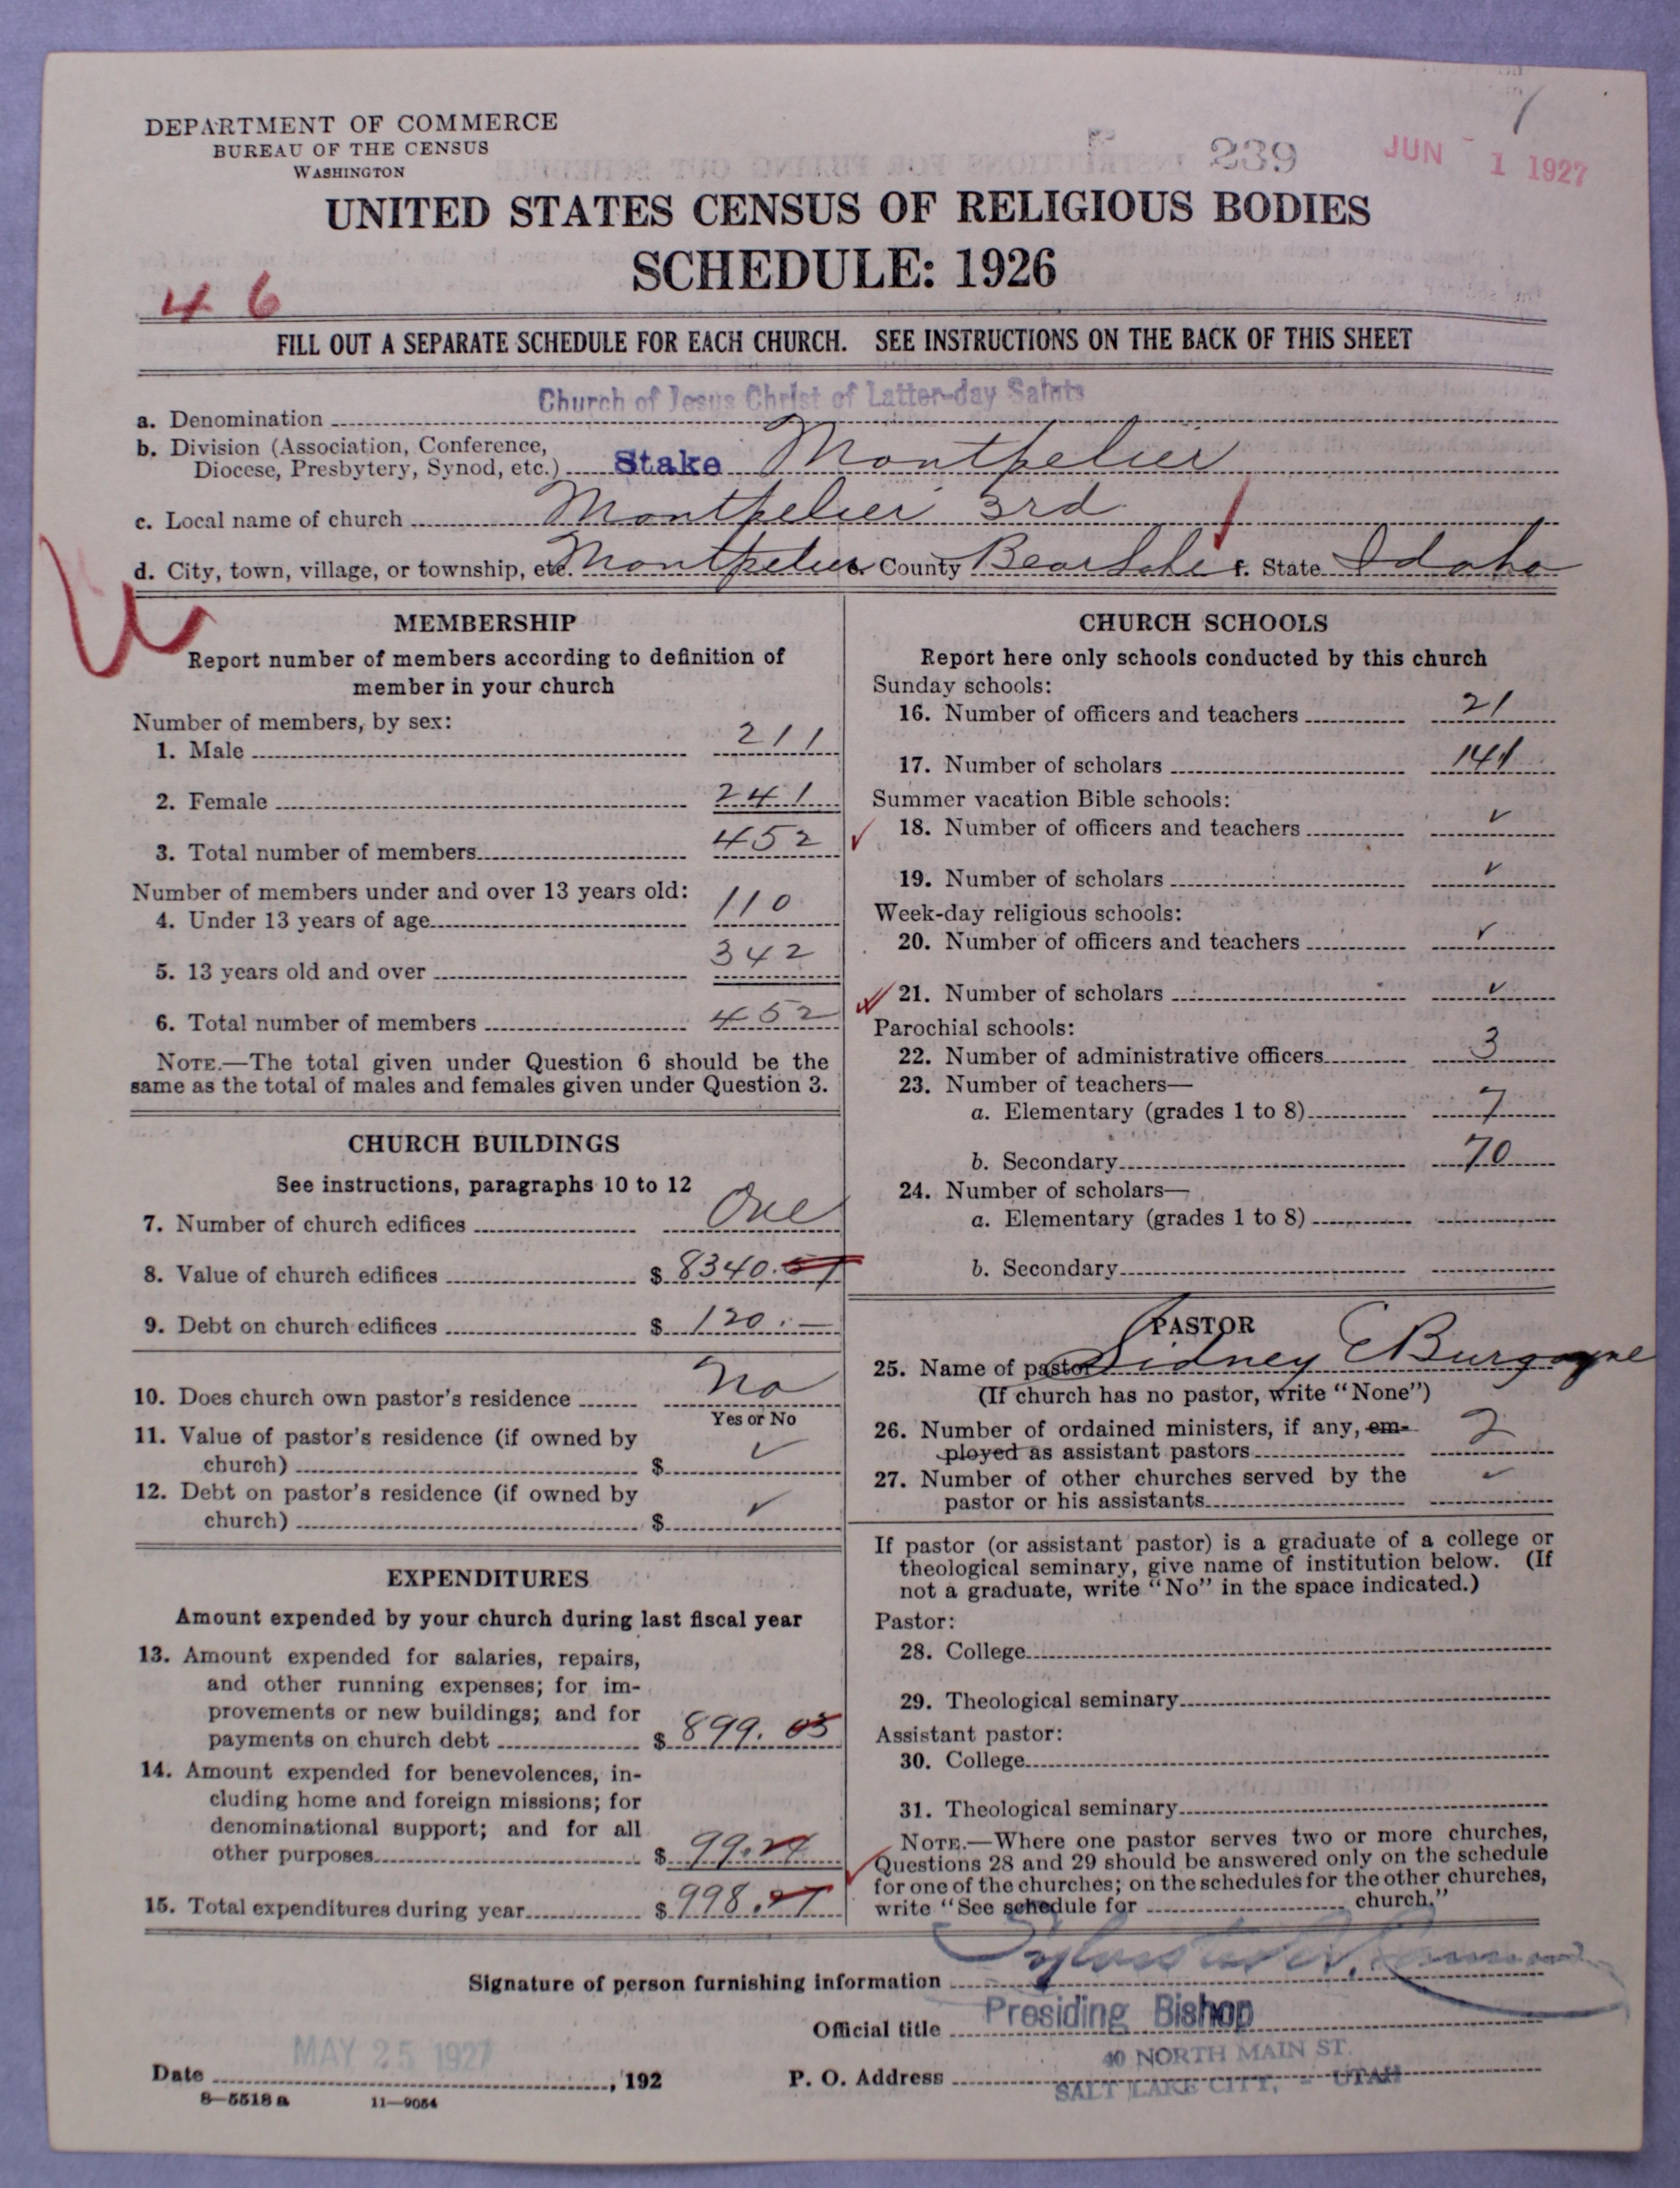 DEPARTMENT OF COMMERCE
BUREAU OF THE CENSUS
WASHINGTON
239
JUN 1 1927
UNITED STATES CENSUS OF RELIGIOUS BODIES
SCHEDULE: 1926
46
FILL OUT A SEPARATE SCHEDULE FOR EACH CHURCH. SEE INSTRUCTIONS ON THE BACK OF THIS SHEET
a. Denomination Church of Jesus Christ of Latter-day Saints
b. Division (Association, Conference,
Diocese, Presbytery, Synod, etc.) Stake Montpelier
c. Local name of church Montpelier 3rd
d. City, town, village, or township, etc. Montpelier e. County Bear Lake f. State Idaho
MEMBERSHIP
Report number of members according to definition of
member in your church
Number of members, by sex:
1. Male 211
2. Female 241
3. Total number of members 452
Number of members under and over 13 years old:
4. Under 13 years of age 110
5. 13 years old and over 342
6. Total number of members 452
NOTE.—The total given under Question 6 should be the
same as the total of males and females given under Question 3.
CHURCH BUILDINGS
See instructions, paragraphs 10 to 12
7. Number of church edifices One
8. Value of church edifices $ 8340.
9. Debt on church edifices $ 120.—
10. Does church own pastor's residence No
Yes or No
11. Value of pastor's residence (if owned by
church) $ ✓
12. Debt on pastor's residence (if owned by
church) $ ✓
EXPENDITURES
Amount expended by your church during last fiscal year
13. Amount expended for salaries, repairs,
and other running expenses; for im-
provements or new buildings; and for
payments on church debt $ 899. 03
14. Amount expended for benevolences, in-
cluding home and foreign missions; for
denominational support; and for all
other purposes $ 99.24
15. Total expenditures during year $ 998.27
CHURCH SCHOOLS
Report here only schools conducted by this church
Sunday schools:
16. Number of officers and teachers 21
17. Number of scholars 141
Summer vacation Bible schools:
18. Number of officers and teachers ✓
19. Number of scholars ✓
Week-day religious schools:
20. Number of officers and teachers ✓
21. Number of scholars ✓
Parochial schools:
22. Number of administrative officers 3
23. Number of teachers—
a. Elementary (grades 1 to 8) 7
b. Secondary 70
24. Number of scholars—
a. Elementary (grades 1 to 8)
b. Secondary
PASTOR
25. Name of pastor Sidney E Burgoyne
(If church has no pastor, write "None")
26. Number of ordained ministers, if any, em-
ployed as assistant pastors 2
27. Number of other churches served by the
pastor or his assistants ✓
If pastor (or assistant pastor) is a graduate of a college or
theological seminary, give name of institution below. (If
not a graduate, write "No" in the space indicated.)
Pastor:
28. College
29. Theological seminary
Assistant pastor:
30. College
31. Theological seminary
NOTE.—Where one pastor serves two or more churches,
Questions 28 and 29 should be answered only on the schedule
for one of the churches; on the schedules for the other churches,
write "See schedule for church."
Signature of person furnishing information
Official title Presiding Bishop
Date MAY 25 1927, 192
P. O. Address 40 NORTH MAIN ST.
SALT LAKE CITY, - UTAH
8—5518 a 11—9054